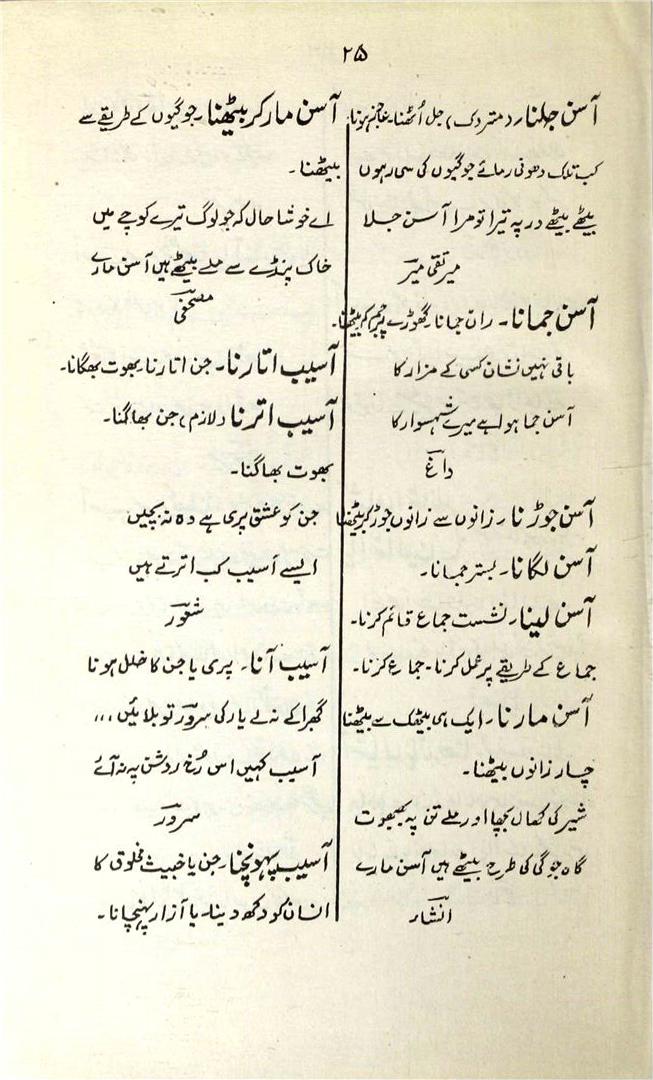 ۲۵
آسن جلنا۔ (متردی) جل اُٹھنا۔ عاجز ہونا۔
کب تلک دھونی رمائے جوگیوں کی سی رہوں
بیٹھے بیٹھے در پہ تیرا تو مرا آسن جلا
میر تقی میر
آسن جمانا۔ ران جمانا۔ گھوڑے پر جم کر بیٹھنا۔
باقی نہیں نشان کسی کے مزار کا
آسن جما ہوا ہے میرے شہسوار کا
داغ
آسن جوڑنا۔ زانوں سے زانوں جوڑ کر بیٹھنا
آسن لگانا۔ بستر جمانا۔
آسن لینا۔ نشست جماع قائم کرنا۔
جماع کے طریقے پر عمل کرنا۔ جماع کرنا۔
آسن مارنا۔ ایک ہی بیٹھک سے بیٹھنا
چار زانوں بیٹھنا۔
شیر کی کھال بچھا اور ملے تن پہ بھبھوت
گاہ جوگی کی طرح بیٹھے ہیں آسن مارے
انشاء
آسن مار کر بیٹھنا۔ جوگیوں کے طریقے سے
بیٹھنا۔
اے خوشا حال کہ جو لوگ تیرے کوچے میں
خاک پنڈے سے ملے بیٹھے ہیں آسن مارے
مصحفی
آسیب اتارنا۔ جن اتارنا۔ بھوت بھگانا۔
آسیب اترنا (لازم) جن بھاگنا۔
بھوت بھاگنا۔
جن کو عشق پری ہے وہ نہ بچیں
ایسے آسیب کب اترتے ہیں
شعور
آسیب آنا۔ پری یا جن کا خلل ہونا
گھبرا کے نہ لے یار کی سرور تو بلائیں ،،،
آسیب کہیں اس رخ روشن پہ نہ آئے
سرور
آسیب پہونچنا۔ جن یا خبیث مخلوق کا
انسان کو دکھ دینا۔ یا آزار پہنچانا۔